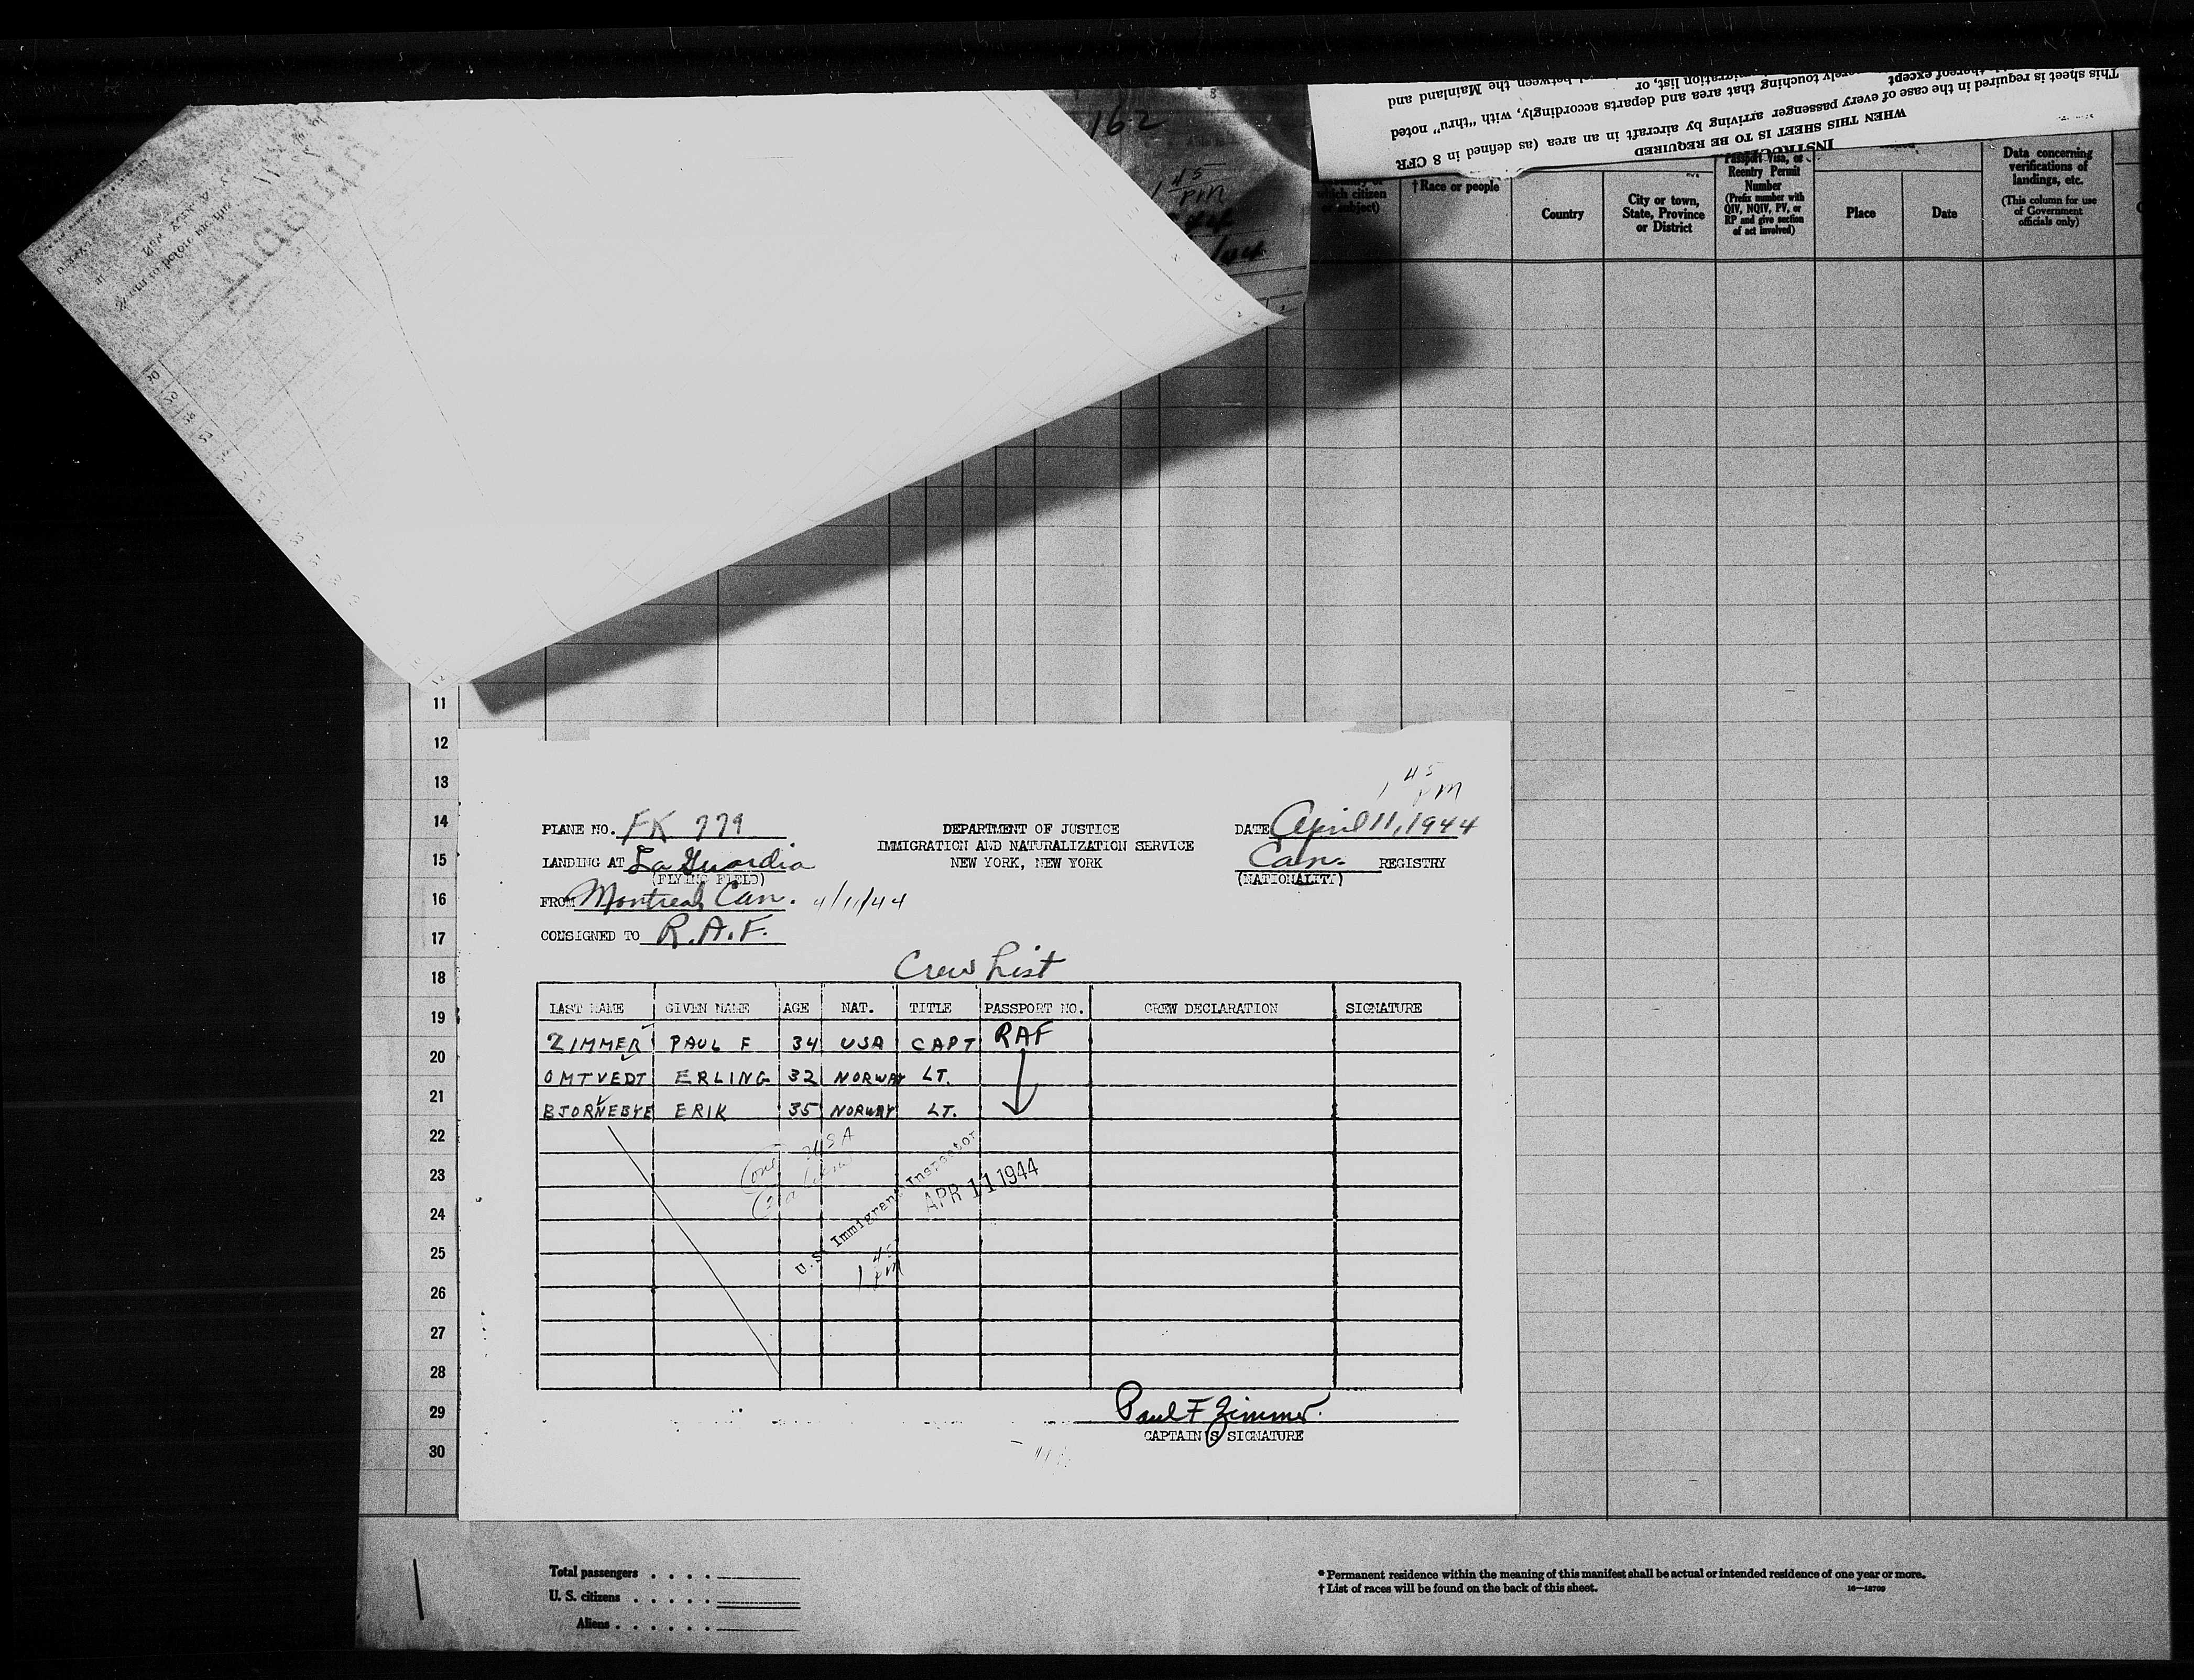 162
1 45 PM
This sheet is required in the case of every passenger arriving by aircraft in an area (as defined in 8 CFR
touching that area and departs accordingly, with "thru" noted
between the Mainland and
WHEN THIS SHEET IS TO BE REQUIRED
which citizen or subject)
†Race or people
Country
City or town, State, Province or District
Passport Visa, or Reentry Permit Number
(Prefix number with QIV, NQIV, PV, or RP and give section of act involved)
Place
Date
Data concerning verifications of landings, etc.
(This column for use of Government officials only)
11
12
13
14
15
16
17
18
19
20
21
22
23
24
25
26
27
28
29
30
1 45 PM
PLANE NO. FK 779
DEPARTMENT OF JUSTICE
DATE April 11, 1944
IMMIGRATION AND NATURALIZATION SERVICE
LANDING AT La Guardia
NEW YORK, NEW YORK
Can. REGISTRY
(FLYING FIELD)
(NATIONALITY)
FROM Montreal Can. 4/11/44
CONSIGNED TO R.A.F.
Crew List
LAST NAME GIVEN NAME AGE NAT. TITLE PASSPORT NO. CREW DECLARATION SIGNATURE
ZIMMER PAUL F 34 USA CAPT RAF
OMTVEDT ERLING 32 NORWAY LT.
BJORNEBYE ERIK 35 NORWAY LT.
U.S. Immigrant Inspector
APR 11 1944
1 45 PM
Paul F Zimmer.
CAPTAIN'S SIGNATURE
Total passengers . . . .
U. S. citizens . . . . .
Aliens . . . . . .
* Permanent residence within the meaning of this manifest shall be actual or intended residence of one year or more.
† List of races will be found on the back of this sheet.
16—18709